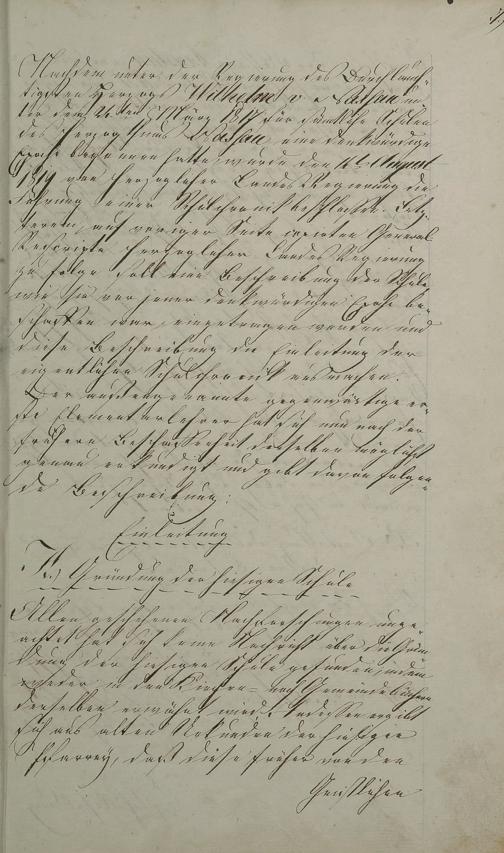 Nachdem unter der Regierung des Durchlauch-
tigsten Herzogs Wilhelm v. Nassau un-
ter dem 24ten März 1817 für sämtliche Schulen
des Herzogthums Nassau eine denkwürdige
Epoche begonnen hatte, wurde den 16t August
1819 von herzoglicher Landes Regierung die
Führung einer Schulchronik befohlen. Letz-
terem auf voriger Seite copirten General
Rescripte herzoglicher Landes Regierung
zu Folge soll eine Beschreibung der Schule
wie sie vor jener denkwürdigen Epoche be-
schaffen war, eingetragen werden und
diese Beschreibung die Einleitung der
eigentlichen Schulchronik ausmachen.
Der außengenannte gegenwärtige er-
ste Elementarlehrer hat sich nun nach der
frühern Beschaffenheit derselben möglichst
genau erkundigt und gibt davon folgen-
de Beschreibung:
Einleitung
Gründung der hiesigen Schule
Allen geschehenen Nachforschungen unge-
achtet hat sich keine Nachricht über die Grün-
dung der hiesigen Schule gefunden, indem
weder in den Kirchen- noch Gemeindebüchern
derselben erwähnt wird. Indessen ergibt
sich aus alten Urkunden der hiesigen
Pfarrey, daß diese früher von den
Geistlichen